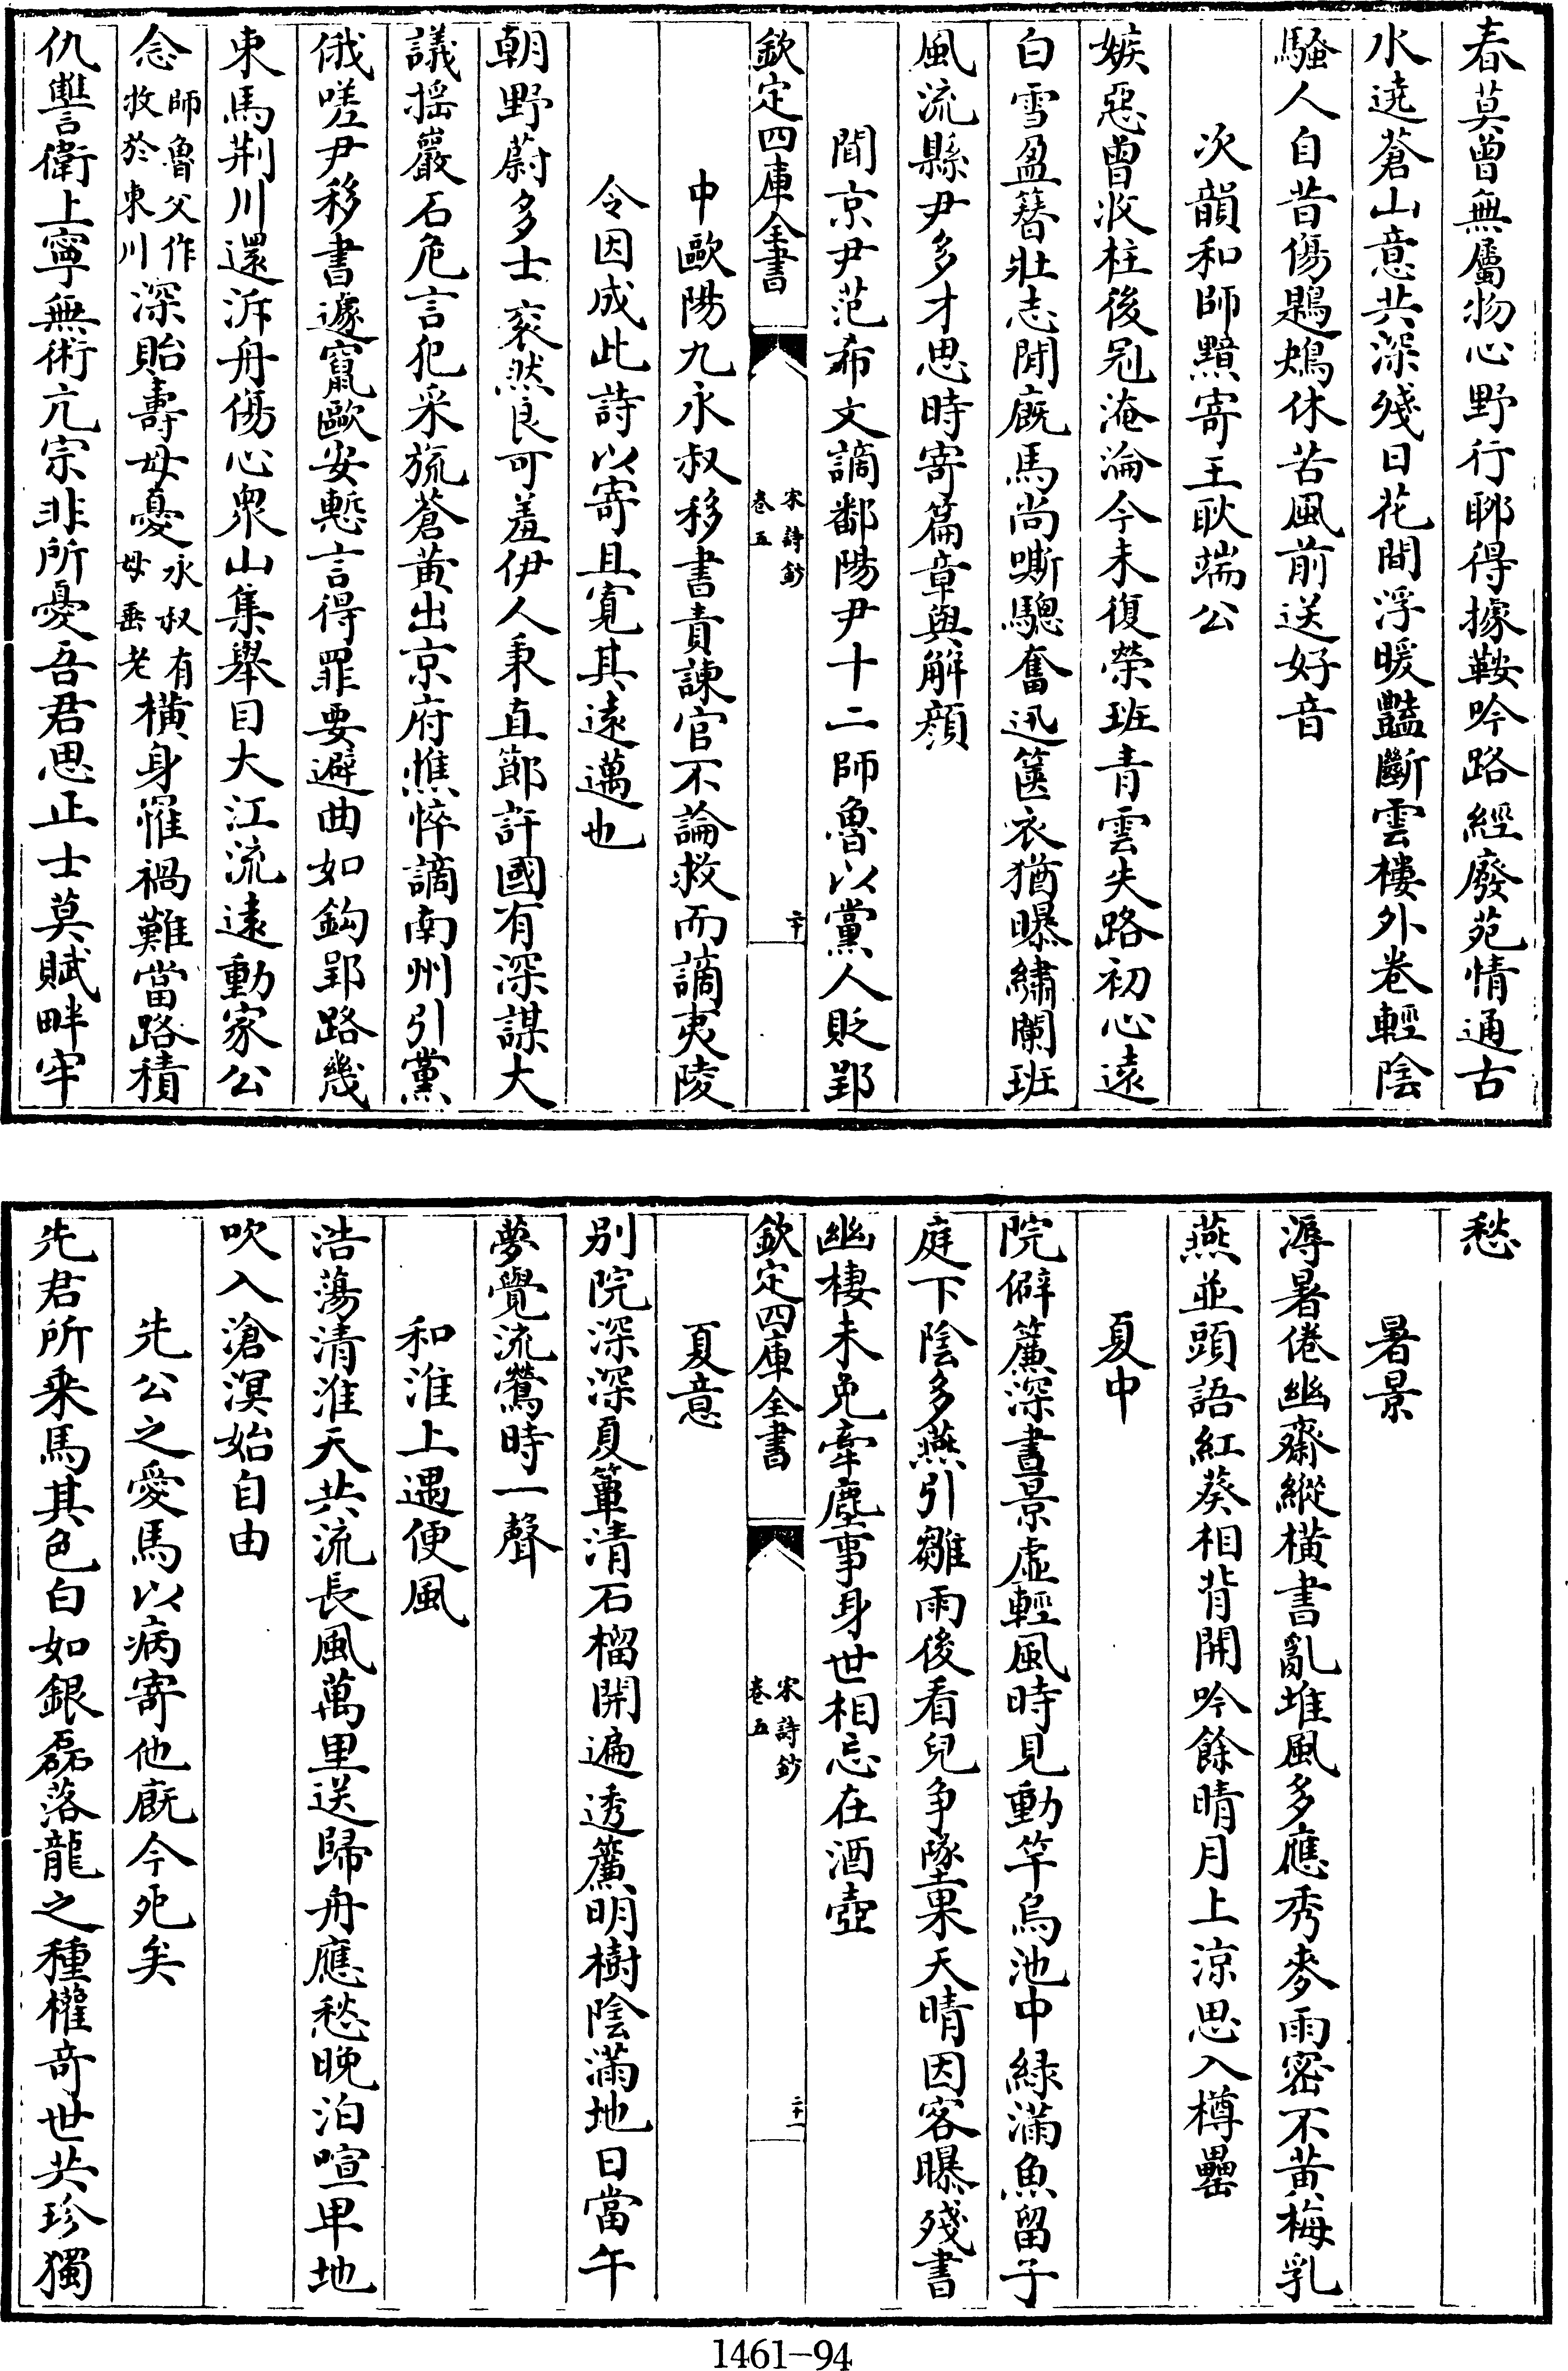 春莫曾無屬物心野行聊得據鞍吟路經廢苑情通古
水遶蒼山意共深殘日花間浮暖豔斷雲樓外卷輕陰
騷人自昔傷鶗鴂休苦風前送好音
次韻和師黯寄王耿端公
嫉惡曾收柱後冠淹淪今未復榮班青雲失路初心遠
白雪盈簪壯志閒廐馬尚嘶驄奮迅篋衣猶曝繡斕班
風流縣尹多才思時寄篇章與解顔
聞京尹范希文謫鄱陽尹十二師魯以黨人貶郢
欽定四庫全書
宋詩鈔
卷五
二十
中歐陽九永叔移書責諫官不論救而謫夷陵
令因成此詩以寄且寛其遠邁也
朝野蔚多士裒然良可羞伊人秉直節許國有深謀大
議摇巖石危言犯采旒蒼黄出京府憔悴謫南州引黨
俄嗟尹移書遽竄歐安慙言得罪要避曲如鈎郢路幾
束馬荆川還泝舟傷心衆山集舉目大江流遠動家公
念師魯父作牧於東川深貽壽母憂永叔有母垂老横身罹禍難當路積
仇讐衛上寧無術亢宗非所憂吾君思正士莫賦畔牢
愁
暑景
溽暑倦幽齋縱横書亂堆風多應秀麥雨密不黄梅乳
燕並頭語紅葵相背開吟餘晴月上涼思入樽罍
夏中
院僻簾深晝景虛輕風時見動竿烏池中緑滿魚留子
庭下陰多燕引雛雨後看兒争墜果天晴因客曝殘書
幽棲未免牽塵事身世相忘在酒壺
欽定四庫全書
宋詩鈔
卷五
二十一
夏意
别院深深夏簟清石榴開遍透簾明樹陰滿地日當午
夢覺流鶯時一聲
和淮上遇便風
浩蕩清淮天共流長風萬里送歸舟應愁晚泊喧卑地
吹入滄溟始自由
先公之愛馬以病寄他廐今死矣
先君所乘馬其色白如銀磊落龍之種權奇世共珍獨
1461-94